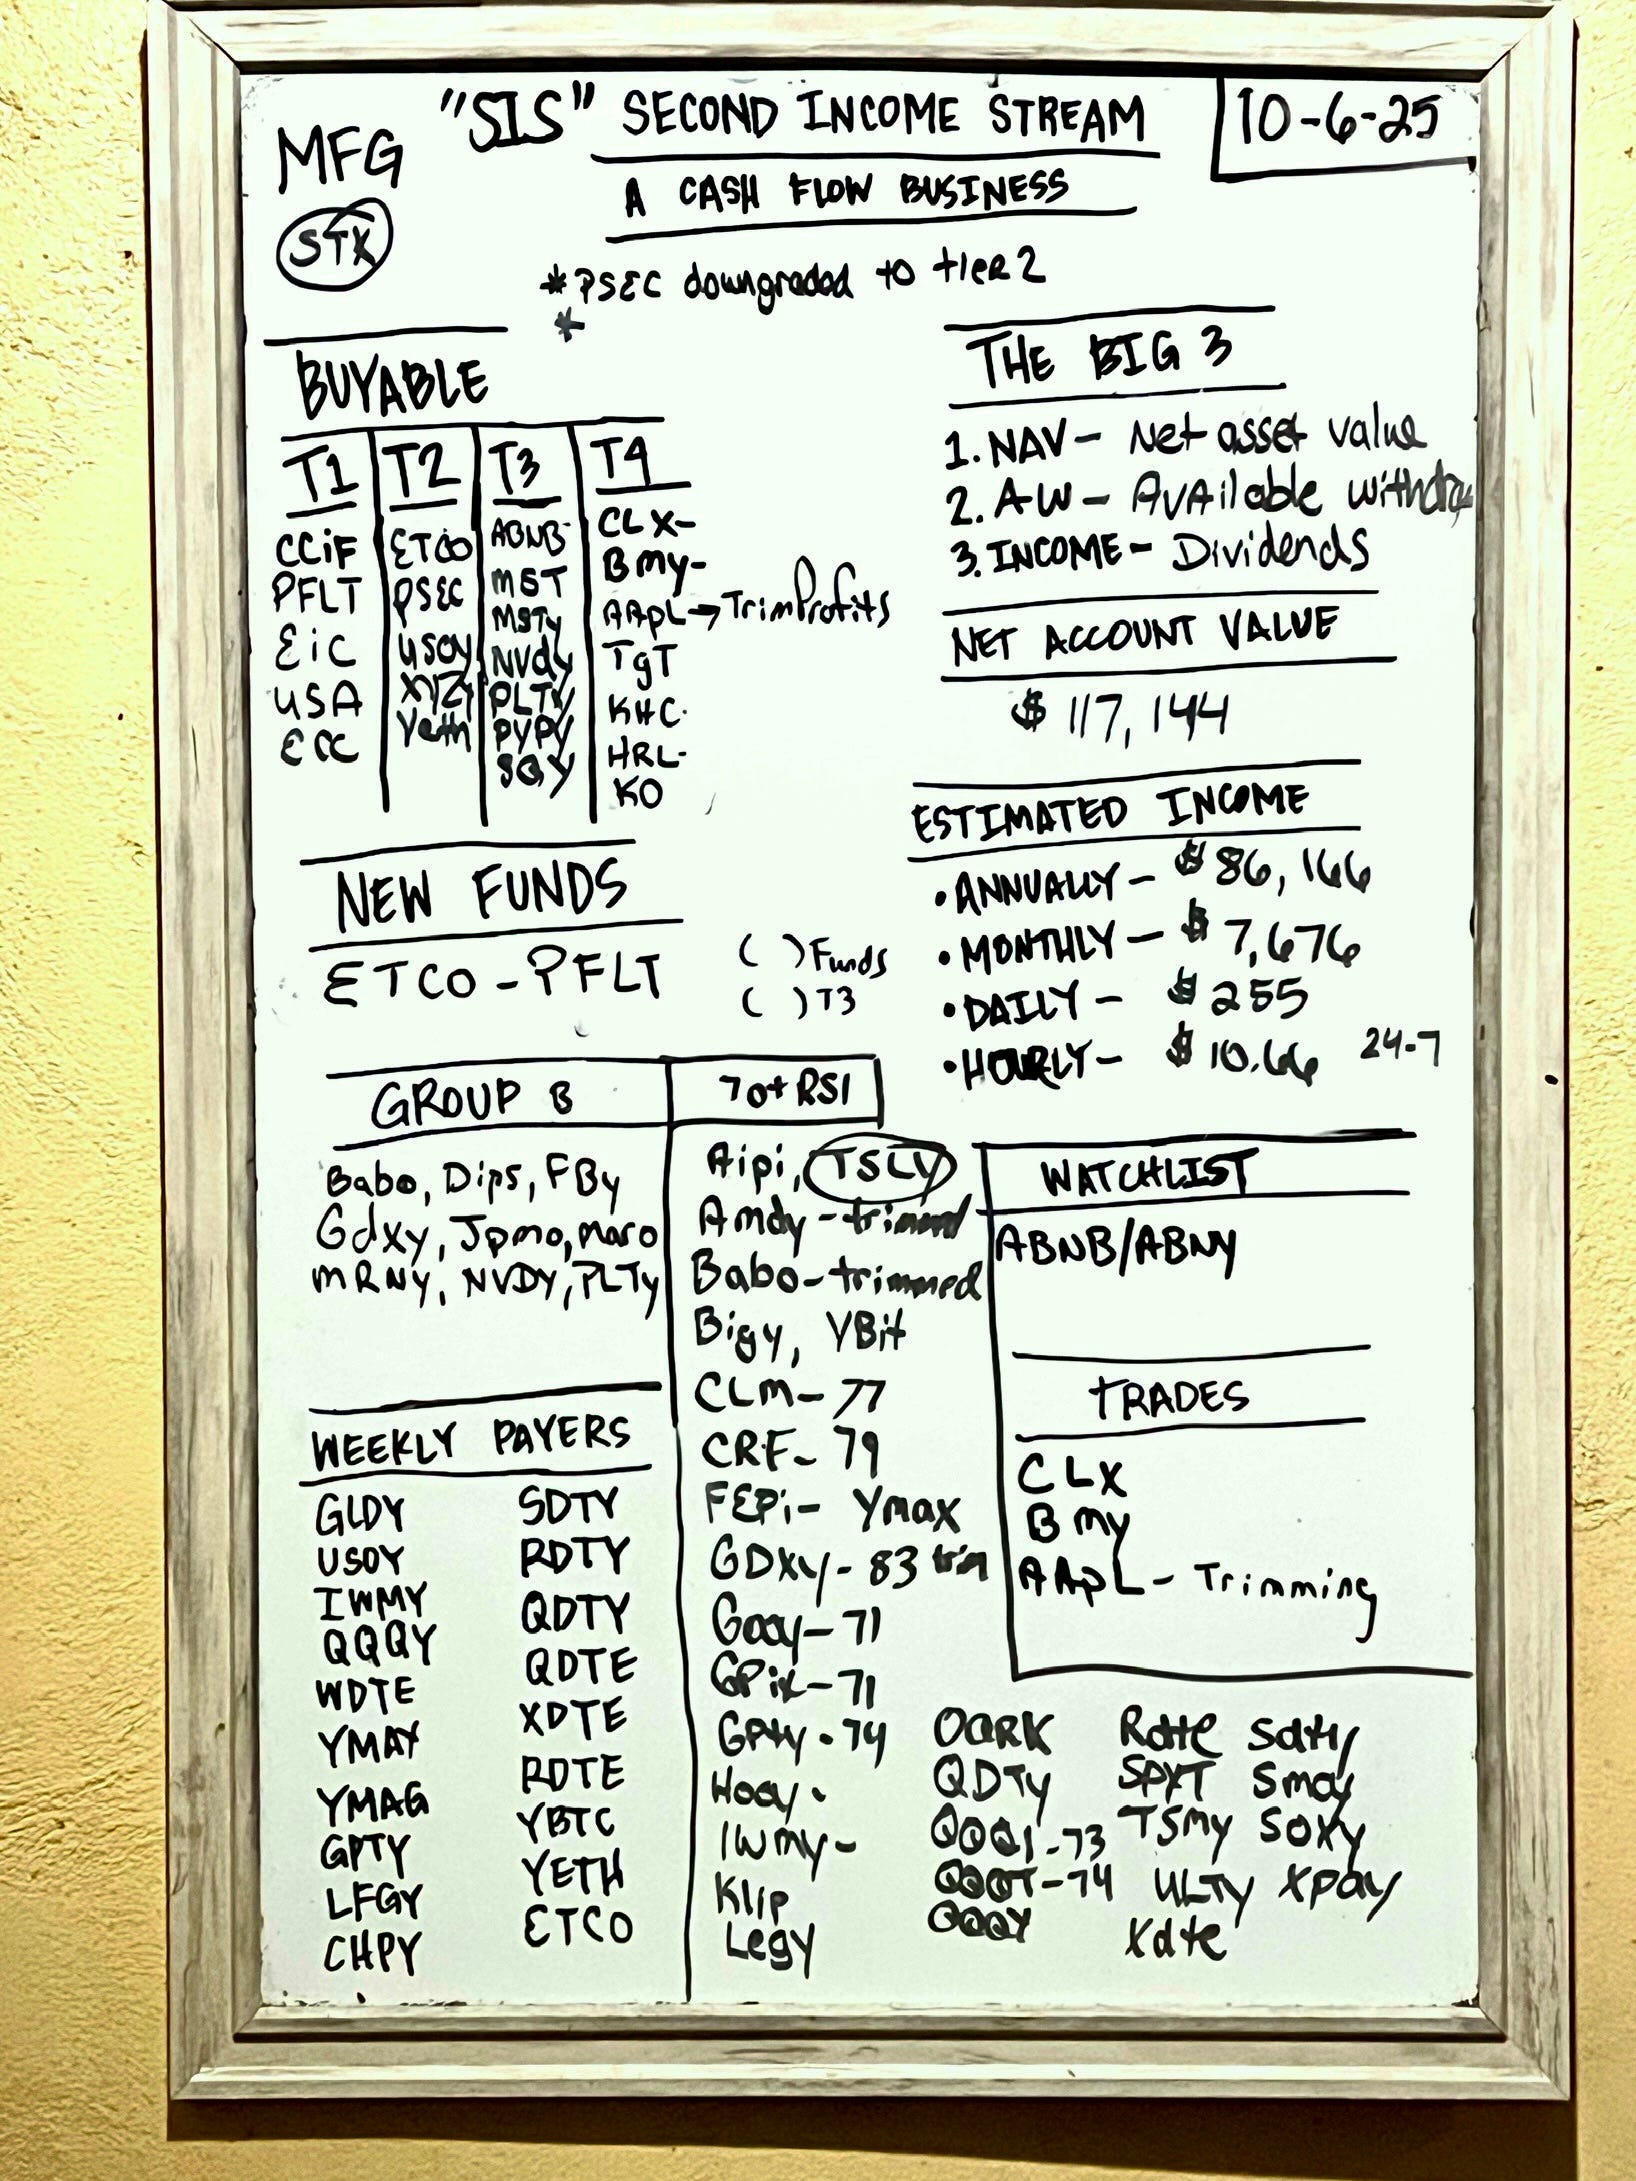 MFG
"SIS" SECOND INCOME STREAM
10-6-25
A CASH FLOW BUSINESS
STX
*PSEC downgraded to tier 2
*
BUYABLE
T1
CCiF
PFLT
EiC
USA
ECC
T2
ETCO
PSEC
USOY
XYZY
Yeth
T3
ABNB-
MST
MSTy
NVdy
PLTY
PYPY
SQY
T4
CLX-
Bmy-
AApL→TrimProfits
TgT
KHC-
HRL-
KO
THE BIG 3
1. NAV- Net asset value
2. AW- AvAilable withdraw
3. INCOME- Dividends
NET ACCOUNT VALUE
$ 117,144
ESTIMATED INCOME
•ANNUALLY- $86,166
•MONTHLY- $7,676
•DAILY- $255
•HOURLY- $10.66 24-7
NEW FUNDS
ETCO-PFLT
( ) Funds
( ) T3
GROUP B
Babo, Dips, FBy
Gdxy, Jpmo, maro
mRNy, NVDY, PLTy
WEEKLY PAYERS
GLDY
USOY
IWMY
QQQY
WDTE
YMAX
YMAG
GPTY
LFGY
CHPY
SDTY
RDTY
QDTY
QDTE
XDTE
RDTE
YBTC
YETH
ETCO
70+ RSI
Aipi, TSLY
Amdy-trimmed
Babo-trimmed
Bigy, YBit
CLM- 77
CRF- 79
FEPi- Ymax
GDXy- 83 trim
Gooy- 71
GPix- 71
GPty- 74
Hooy-
IWmy-
Klip
Lfgy
OARK
QDTy
QQQI-73
QQQT-74
QQQY
Rdte
SPYT
TSmy
ULTy
Xdte
Sdty
Smcy
SOXY
Xpay
WATCHLIST
ABNB/ABNY
TRADES
CLX
Bmy
AApL- Trimming